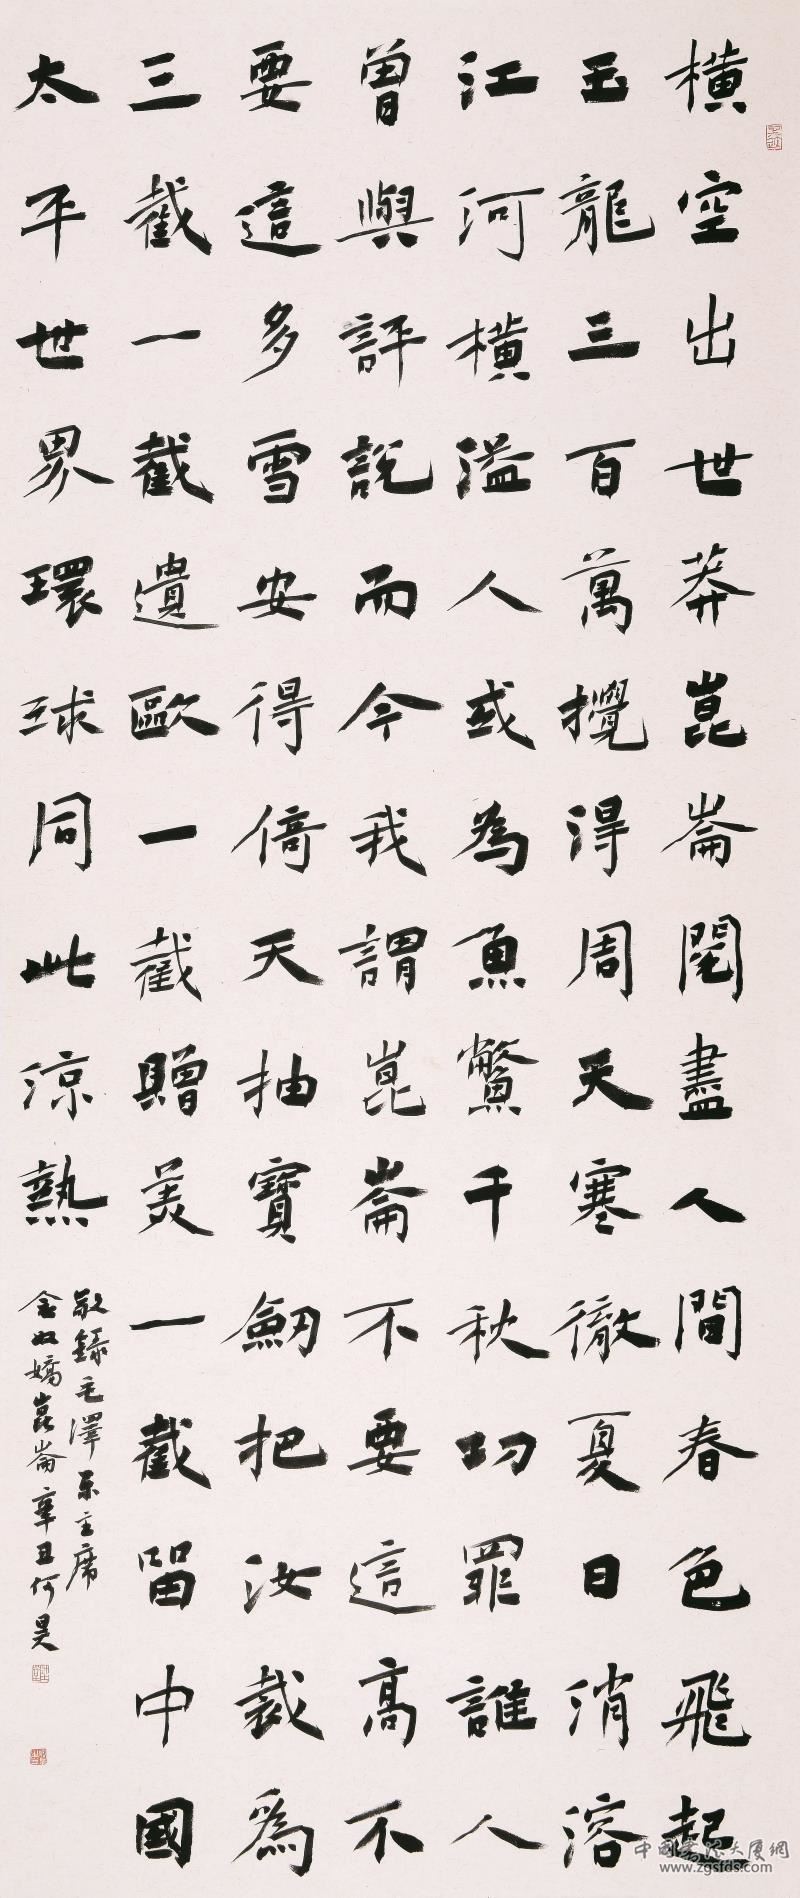 橫空出世莽崑崙閱盡人間春色飛起
玉龍三百萬攪得周天寒徹夏日消溶
江河橫溢人或為魚鱉千秋功罪誰人
曾與評說而今我謂崑崙不要這高不
要這多雪安得倚天抽寶劍把汝裁為
三截一截遺歐一截贈美一截留中國
太平世界環球同此涼熱
敬録毛澤東主席
念奴嬌崑崙辛丑何昊
中國書法大厦網
www.zgsfds.com